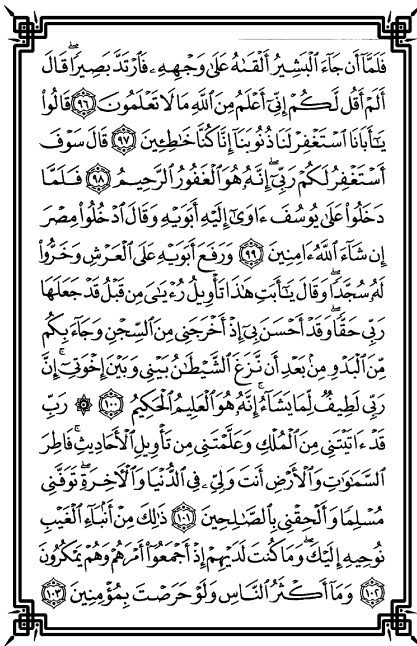 فَلَمَّآ أَن جَآءَ ٱلْبَشِيرُ أَلْقَىٰهُ عَلَىٰ وَجْهِهِۦ فَٱرْتَدَّ بَصِيرًۭا ۖ قَالَ
أَلَمْ أَقُل لَّكُمْ إِنِّىٓ أَعْلَمُ مِنَ ٱللَّهِ مَا لَا تَعْلَمُونَ ٩٦ قَالُوا۟
يَـٰٓأَبَانَا ٱسْتَغْفِرْ لَنَا ذُنُوبَنَآ إِنَّا كُنَّا خَـٰطِـِٔينَ ٩٧ قَالَ سَوْفَ
أَسْتَغْفِرُ لَكُمْ رَبِّىٓ ۖ إِنَّهُۥ هُوَ ٱلْغَفُورُ ٱلرَّحِيمُ ٩٨ فَلَمَّا
دَخَلُوا۟ عَلَىٰ يُوسُفَ ءَاوَىٰٓ إِلَيْهِ أَبَوَيْهِ وَقَالَ ٱدْخُلُوا۟ مِصْرَ
إِن شَآءَ ٱللَّهُ ءَامِنِينَ ٩٩ وَرَفَعَ أَبَوَيْهِ عَلَى ٱلْعَرْشِ وَخَرُّوا۟
لَهُۥ سُجَّدًۭا ۖ وَقَالَ يَـٰٓأَبَتِ هَـٰذَا تَأْوِيلُ رُءْيَـٰىَ مِن قَبْلُ قَدْ جَعَلَهَا
رَبِّى حَقًّۭا ۖ وَقَدْ أَحْسَنَ بِىٓ إِذْ أَخْرَجَنِى مِنَ ٱلسِّجْنِ وَجَآءَ بِكُم
مِّنَ ٱلْبَدْوِ مِنۢ بَعْدِ أَن نَّزَغَ ٱلشَّيْطَـٰنُ بَيْنِى وَبَيْنَ إِخْوَتِىٓ ۚ إِنَّ
رَبِّى لَطِيفٌۭ لِّمَا يَشَآءُ ۚ إِنَّهُۥ هُوَ ٱلْعَلِيمُ ٱلْحَكِيمُ ١٠٠ ۞ رَبِّ
قَدْ ءَاتَيْتَنِى مِنَ ٱلْمُلْكِ وَعَلَّمْتَنِى مِن تَأْوِيلِ ٱلْأَحَادِيثِ ۚ فَاطِرَ
ٱلسَّمَـٰوَٰتِ وَٱلْأَرْضِ أَنتَ وَلِىِّۦ فِى ٱلدُّنْيَا وَٱلْـَٔاخِرَةِ ۖ تَوَفَّنِى
مُسْلِمًۭا وَأَلْحِقْنِى بِٱلصَّـٰلِحِينَ ١٠١ ذَٰلِكَ مِنْ أَنۢبَآءِ ٱلْغَيْبِ
نُوحِيهِ إِلَيْكَ ۖ وَمَا كُنتَ لَدَيْهِمْ إِذْ أَجْمَعُوٓا۟ أَمْرَهُمْ وَهُمْ يَمْكُرُونَ
١٠٢ وَمَآ أَكْثَرُ ٱلنَّاسِ وَلَوْ حَرَصْتَ بِمُؤْمِنِينَ ١٠٣